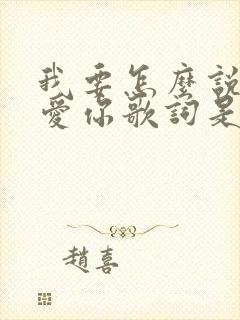 我要怎麼說
愛你歌詞是
趙喜